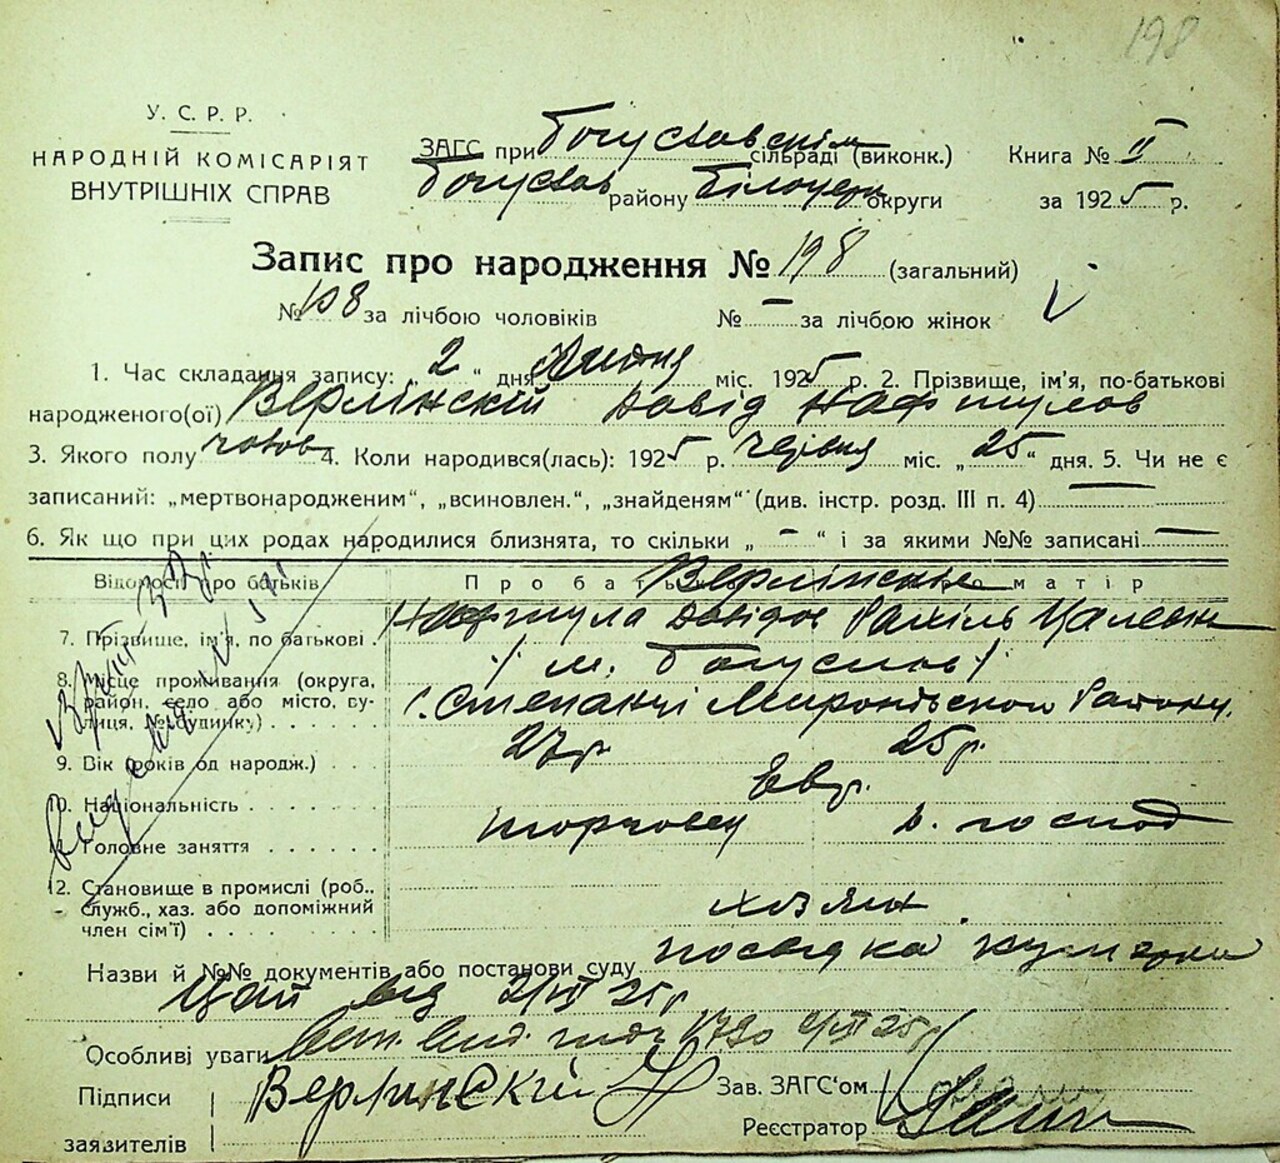 198
У. С. Р. Р.
НАРОДНІЙ КОМІСАРІЯТ
ВНУТРІШНІХ СПРАВ
ЗАГС при Богуславскім сільраді (виконк.)
Богуслав району Білоцерк округи
Книга № II
за 1925 р.
Запис про народження № 198 (загальний)
№ 108 за лічбою чоловіків № — за лічбою жінок
1. Час складання запису: „ 2 “ дня Липня міс. 1925 р. 2. Прізвище, ім'я, по-батькові
народженого(ої) Верлінскій Давід Нафтулов
3. Якого полу чолов 4. Коли народився(лась): 1925 р. червня міс. „ 25 “ дня. 5. Чи не є
записаний: „мертвонародженим“, „всиновлен.“, „знайденям“ (див. інстр. розд. III п. 4) —
6. Як що при цих родах народилися близнята, то скільки „ — “ і за якими №№ записані —
Відомості про батьків Про батька Про матір
Верлінскье
7. Прізвище, ім'я, по батькові . Нафтула Давідов Рахіль
8. Місце проживання (округа, м. Богуслав
район, село або місто, ву- с. Степанці Миронівского Району.
лиця, № будинку) . . . . .
9. Вік (років од народж.) . . . 27 р. 25 р.
10. Національність . . . . . . . Евр.
11. Головне заняття . . . . . . торговец д. господ
12. Становище в промислі (роб.,
служб., хаз. або допоміжний хозяин
член сім'ї) . . . . . . . .
Назви й №№ документів або постанови суду посвідка
від 2/VII 25 р
Особливі уваги 25 р
Підписи
заявителів
Верлинский
Зав. ЗАГС'ом
Реєстратор